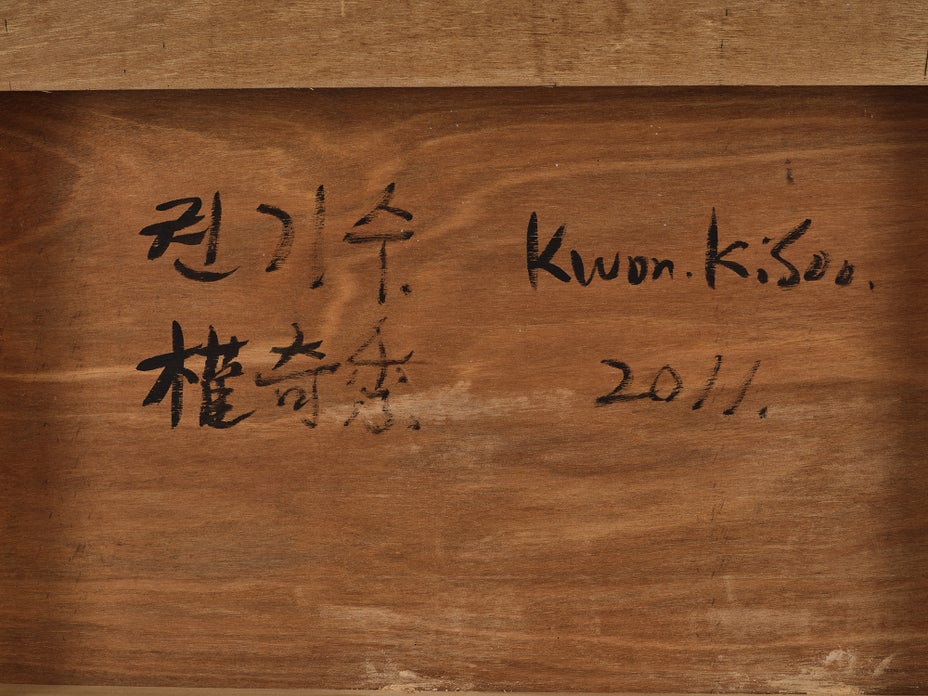 권기수. Kwon.KiSoo.
權奇秀. 2011.